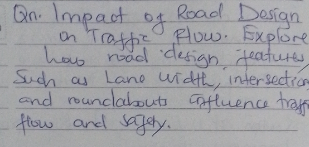 Qn. Impact of Road Design
on Traffic Flow. Explore
how road design features
Such as Lane width, intersection
and roundabouts influence traff
flow and safety.